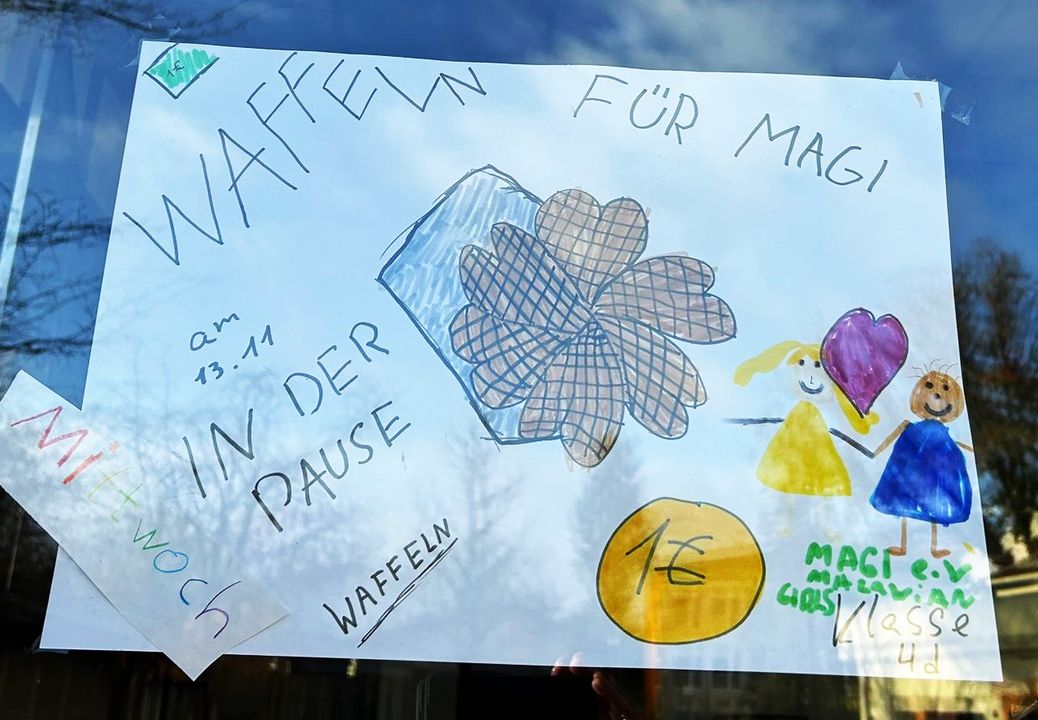 1€
WAFFELN FÜR MAGI
am
13.11
IN DER
PAUSE
Mittwoch
WAFFELN
1€
MAGI e.V
MALAWIAN
GIRLS
Klasse
4d